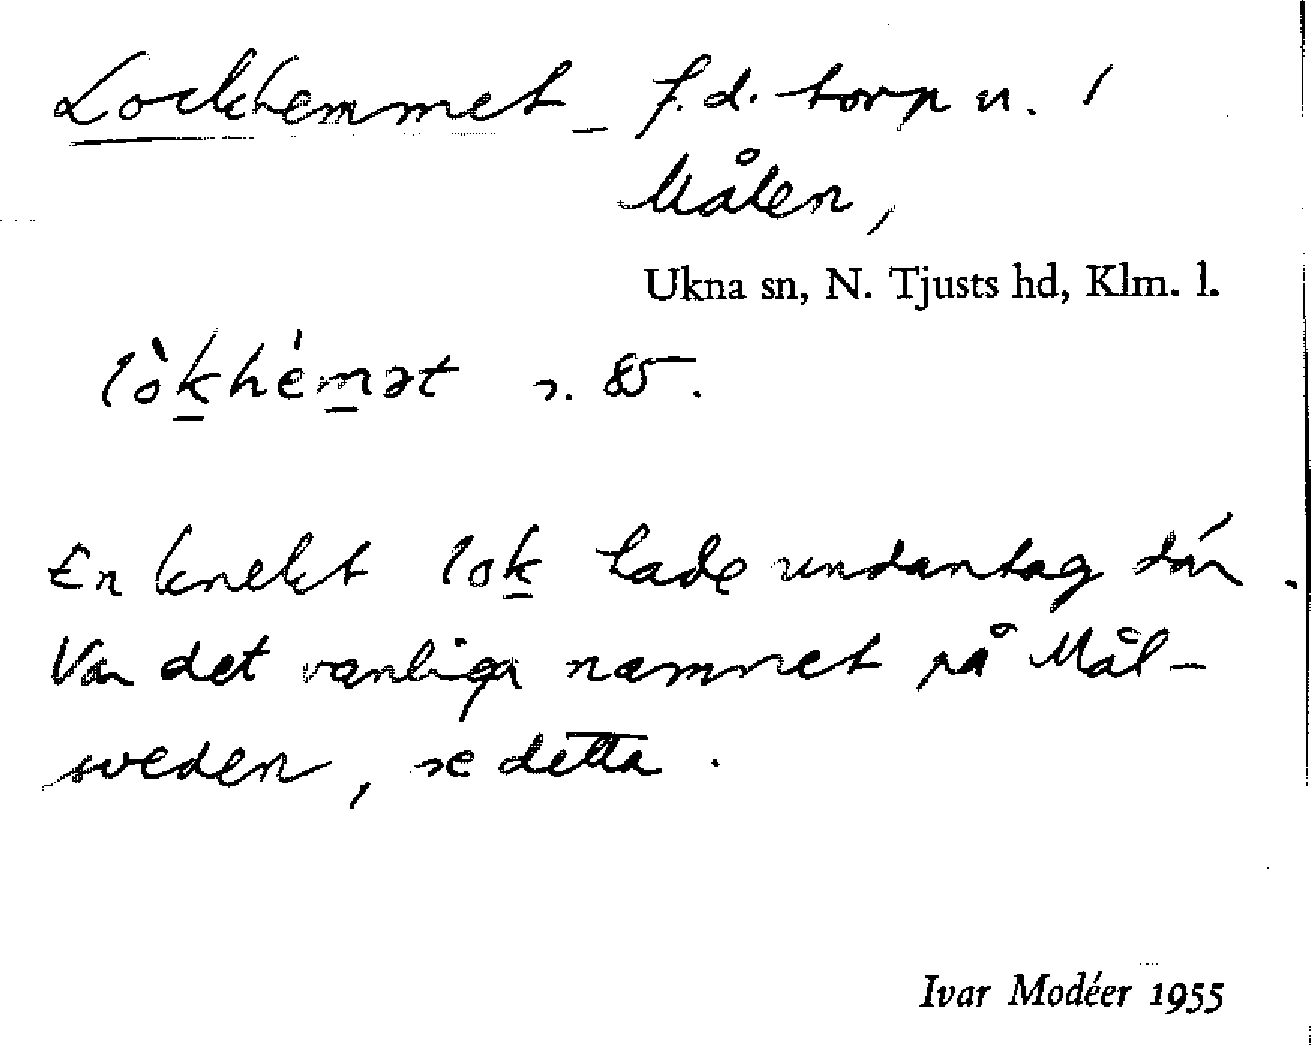 Lockhemmet_ f.d. torp u. 1
Målen,
Ukna sn, N. Tjusts hd, Klm. l.
lòk̲hém̲ət s. 85.
En knekt lok̲ hade undantag där.
Var det vanliga namnet på Mål-
sveden, se detta.
Ivar Modéer 1955